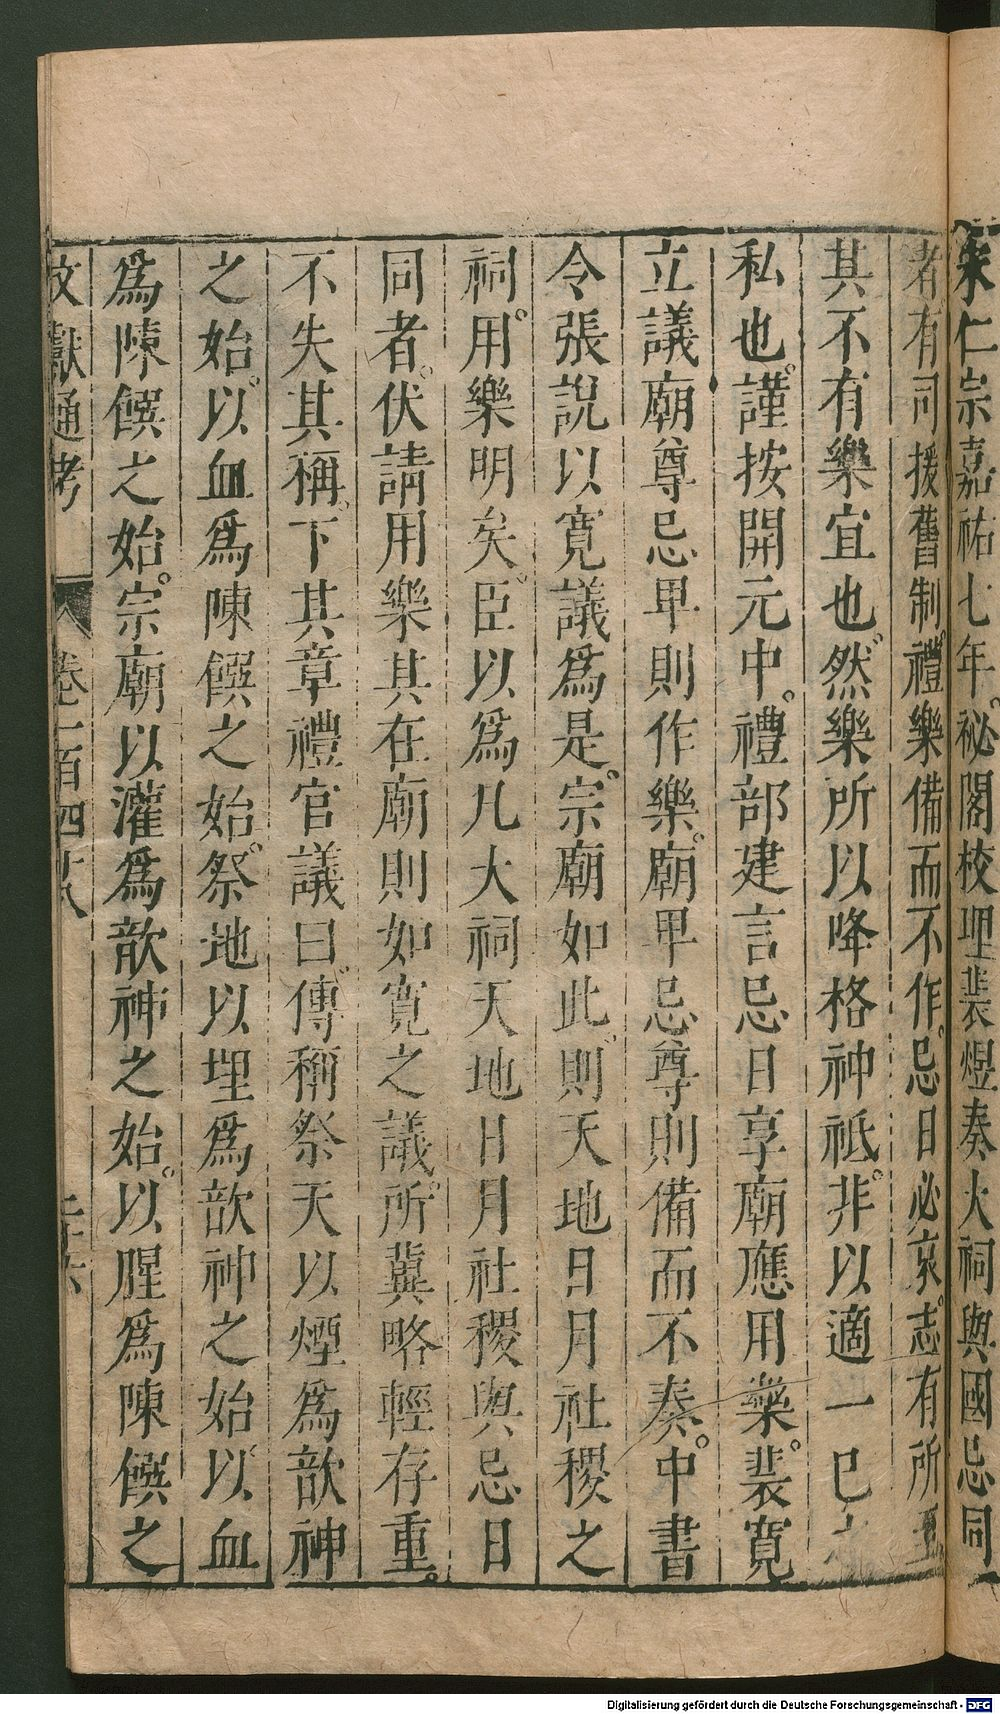 宋仁宗嘉祐七年祕閣校理裴煜奏大祠與國忌同
者有司援舊制禮樂備而不作忌日必哀志有所至
其不有樂宜也然樂所以降格神祗非以適一已之
私也謹按開元中禮部建言忌日享廟應用樂裴寬
立議廟尊忌卑則作樂廟卑忌尊則備而不奏中書
令張說以寬議爲是宗廟如此則天地日月社稷之
祠用樂明矣臣以爲凡大祠天地日月社稷與忌日
同者伏請用樂其在廟則如寬之議所冀略輕存重
不失其稱下其章禮官議曰傳稱祭天以煙爲歆神
之始以血爲陳饌之始祭地以埋爲歆神之始以血
爲陳饌之始宗廟以灌爲歆神之始以腥爲陳饌之
文獻通考 卷一百四十八 二十六
Digitalisierung gefördert durch die Deutsche Forschungsgemeinschaft - DFG